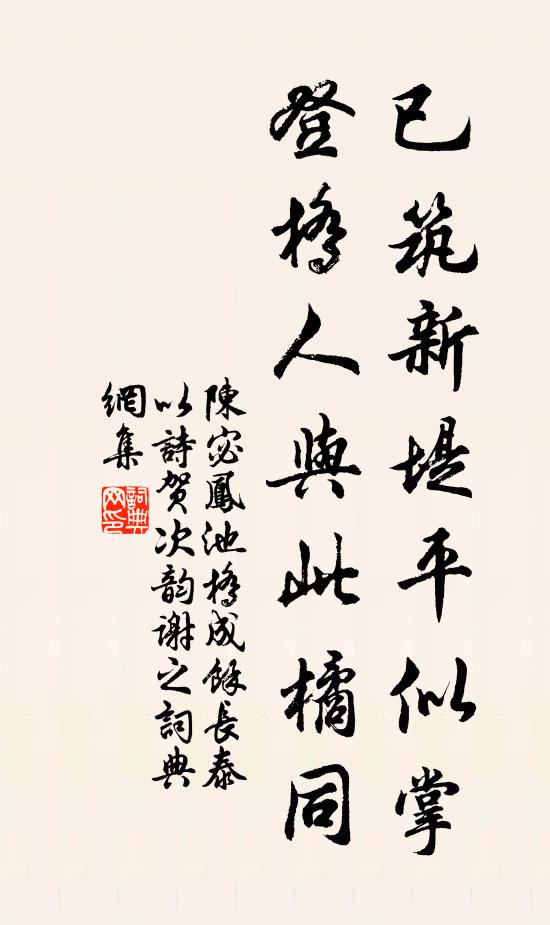 已筑新堤平似掌
登橋人與此橘同
陳宓鳳池橋成餘長泰
以詩賀次韵謝之詞典
網集
詞典
网印